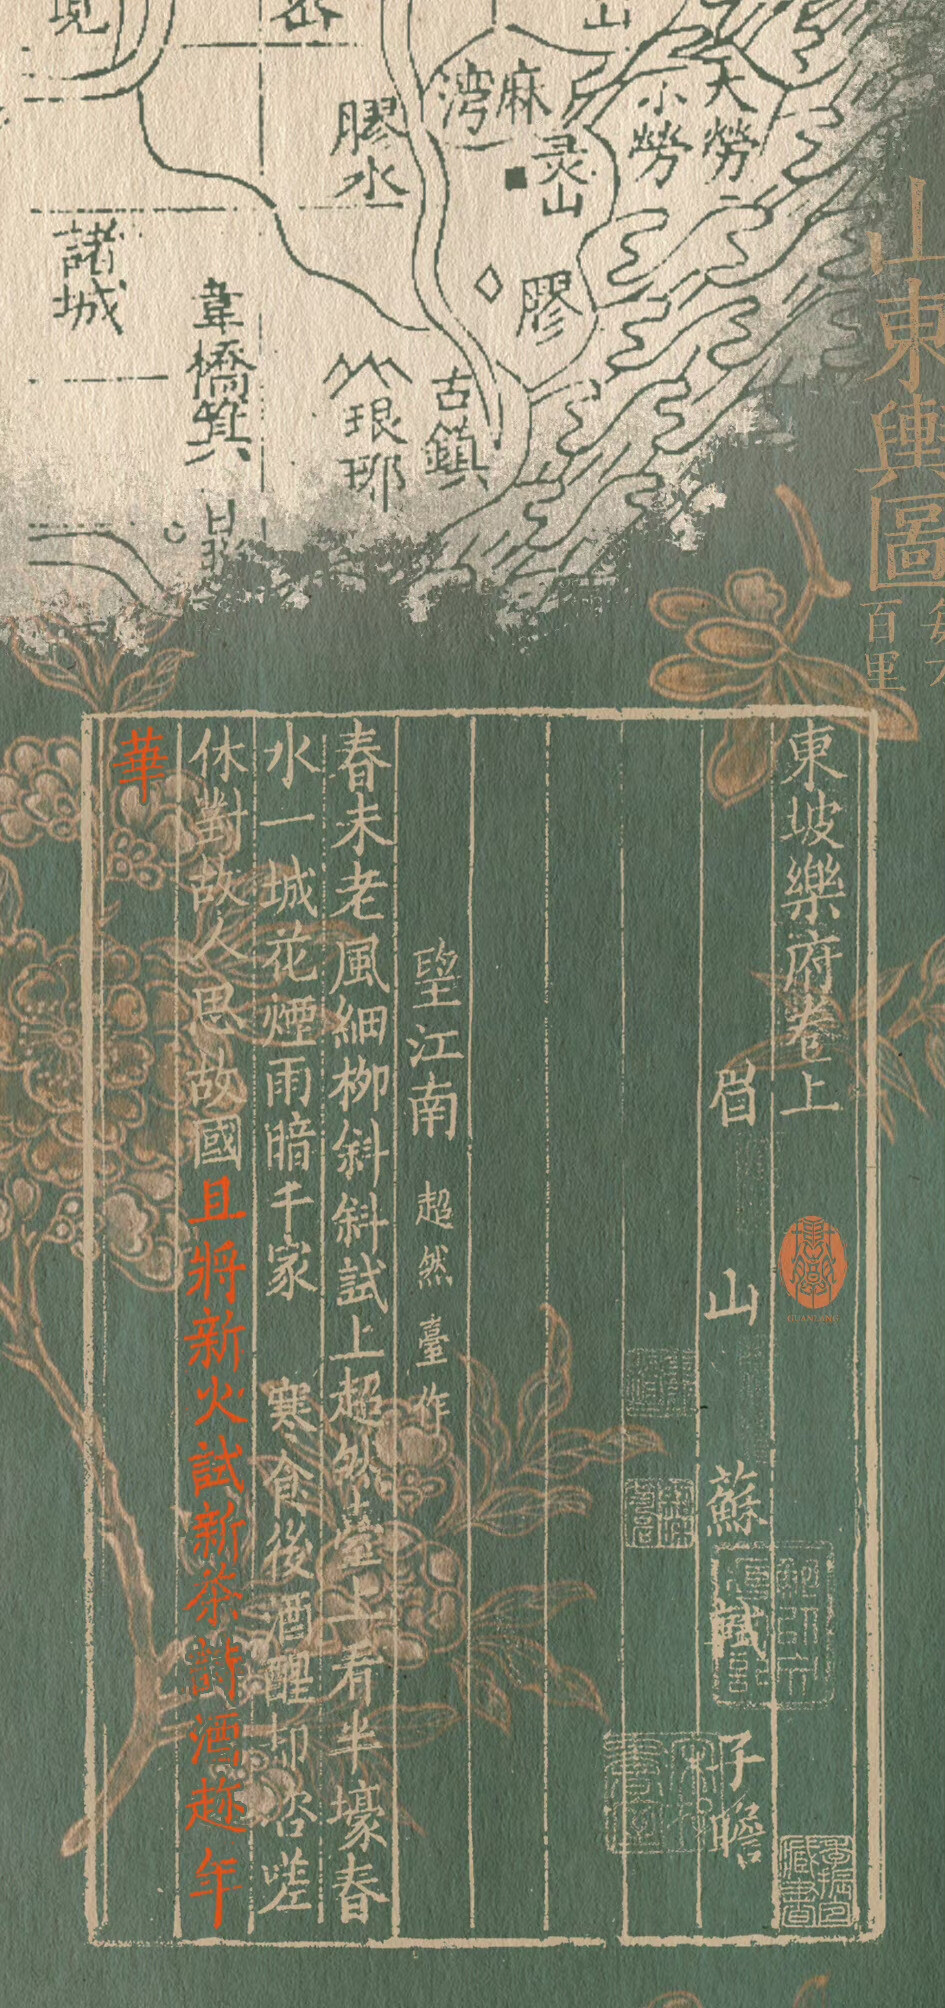 山東輿圖
每方
百里
大勞
小勞
麻
灣
灵山
膠
膠水
古鎮
琅琊
韋橋箕
諸城
東坡樂府卷上
眉山蘇軾子瞻
望江南 超然臺作
春未老風細柳斜斜試上超然臺上看半壕春
水一城花煙雨暗千家 寒食後酒醒却咨嗟
休對故人思故國且將新火試新茶詩酒趂年
華
HUANXING